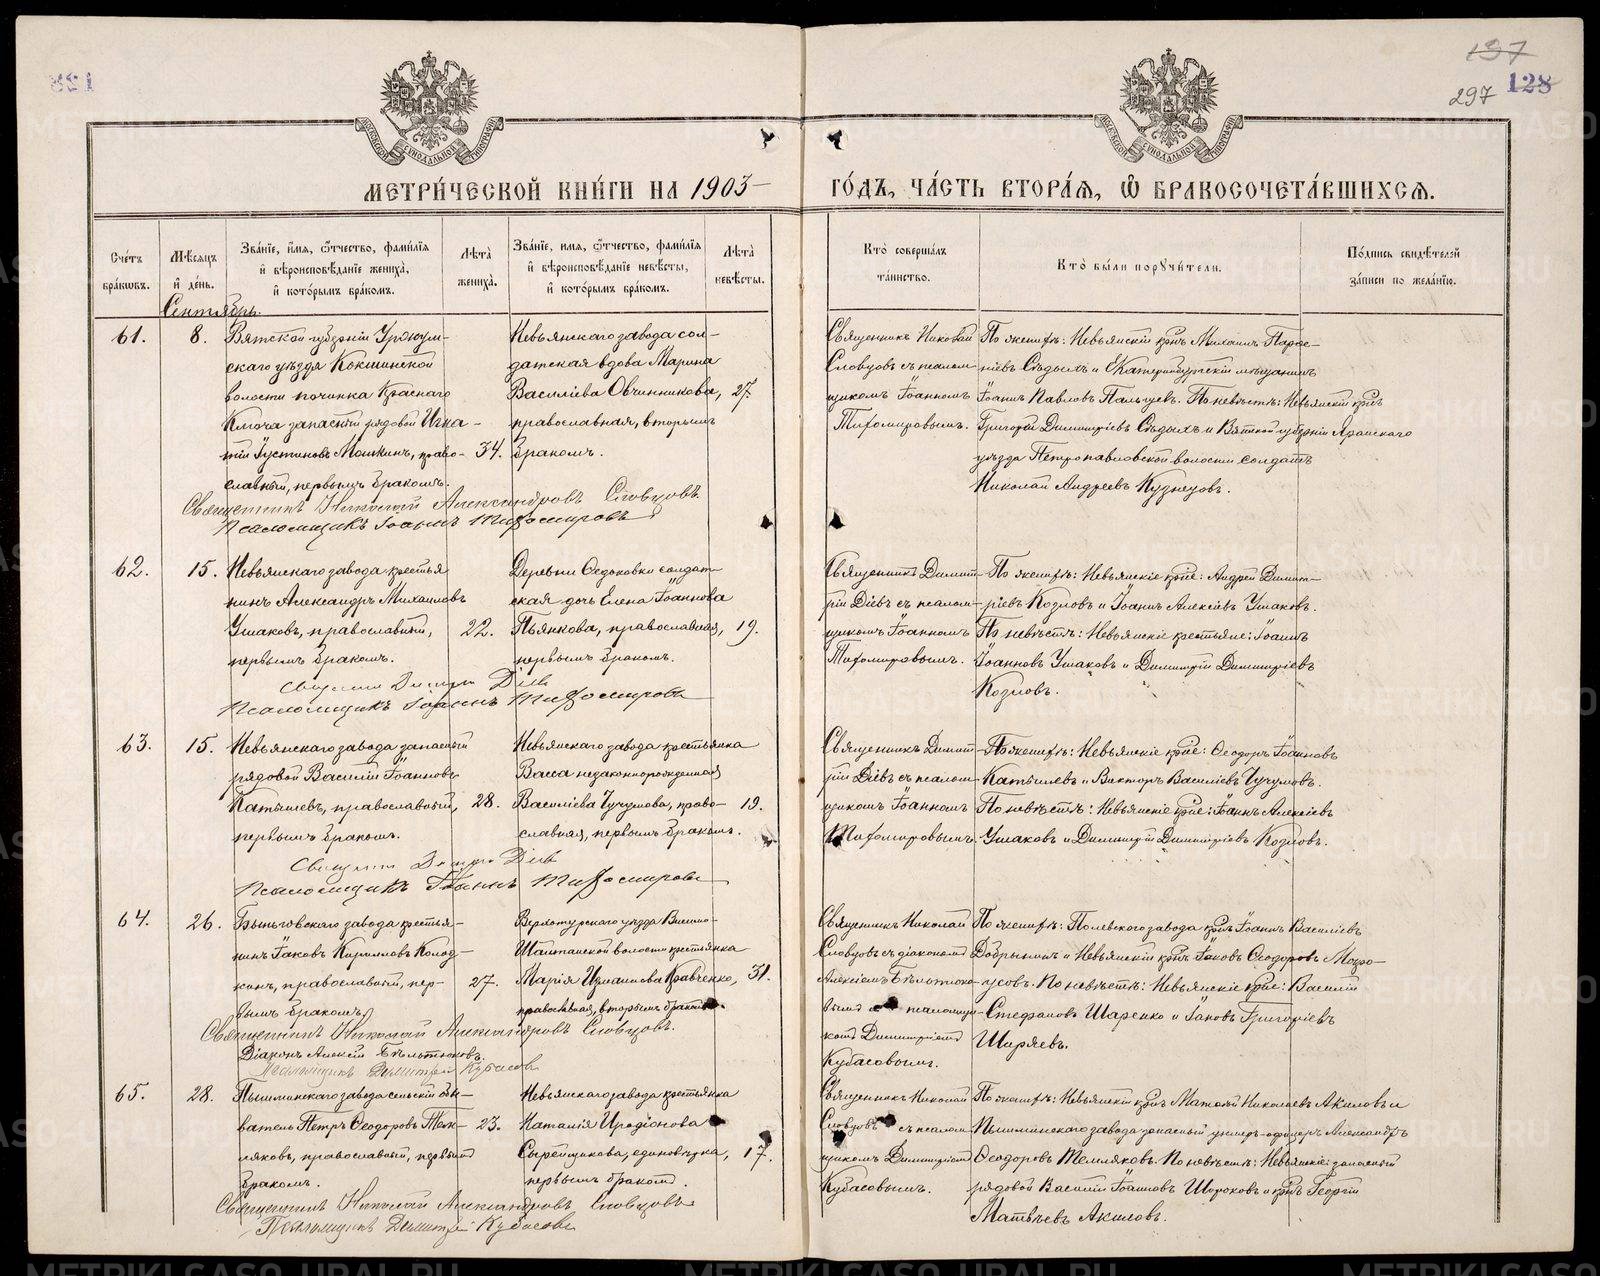 137
297 128
МЕТРИ́ЧЕСКОЙ КНИ́ГИ НА 1903
ГО́ДЪ, ЧА́СТЬ ВТОРА́Я, Ѡ БРАКОСОЧЕТА́ВШИХСЯ.
Сче́тъ бра́ковъ.
Мѣ́сяцъ и҆ де́нь.
Зва́нїе, и҆́мя, ѻ҆́тчество, фами́лїя и҆ вѣроисповѣ́данїе жениха̀, и҆ кото́рымъ бра́комъ.
Лѣ́та жениха̀.
Зва́нїе, имя, ѻ҆́тчество, фами́лїя и҆ вѣроисповѣ́данїе невѣ́сты, и҆ кото́рымъ бра́комъ.
Лѣ́та невѣ́сты.
Кто̀ соверша́лъ та́инство.
Кто̀ бы́ли порꙋчи́тели.
По́дпись свидѣ́телей за́писи по жела́нїю.
Сентябрь.
61.
8.
Вятской губерніи Уржум-
скаго уѣзда Кокшинской
волости починка Краснаго
Ключа запасный рядовой Игна-
тій Іустиновъ Мошкинъ, право-
славный, первымъ бракомъ.
34.
Невьянскаго завода сол-
датская вдова Марина
Василіева Овчинникова,
православная, вторымъ
бракомъ.
27.
Священникъ Николай
Словцовъ съ псалом-
щикомъ Іоанномъ
Тихомировымъ.
По женихѣ: Невьянскій крнъ Михаилъ Парѳе-
ніевъ Сѣдыхъ и Екатеринбургскій мѣщанинъ
Іоаннъ Павловъ Пальцевъ. По невѣстѣ: Невьянскій крнъ
Григорій Димитріевъ Сѣдыхъ и Вятской губерніи Яранскаго
уѣзда Петропавловской волости солдатъ
Николай Андреевъ Кузнецовъ.
Священникъ Николай Александровъ Словцовъ
Псаломщикъ Іоаннъ Тихомировъ
62.
15.
Невьянскаго завода крестья
нинъ Александръ Михаиловъ
Ушаковъ, православный,
первымъ бракомъ.
22.
Деревни Ѳедьковки солдат-
ская дочь Елена Іоаннова
Пьянкова, православная,
первымъ бракомъ.
19.
Священникъ Димит-
рій Діевъ съ псалом-
щикомъ Іоанномъ
Тихомировымъ.
По женихѣ: Невьянскіе крне: Андрей Димит-
ріевъ Козловъ и Іоаннъ Алексіевъ Ушаковъ.
По невѣстѣ: Невьянскіе крестьяне: Іоаннъ
Іоанновъ Ушаковъ и Димитрій Димитріевъ
Козловъ.
Священ Дмитрі Діевъ
Псаломщикъ Іоаннъ Тихомировъ
63.
15.
Невьянскаго завода запасный
рядовой Василій Іоанновъ
Катышевъ, православный,
первымъ бракомъ.
28.
Невьянскаго завода крестьянка
Васса незаконнорожденная
Василіева Чучумова, право-
славная, первымъ бракомъ.
19.
Священникъ Димит-
рій Діевъ съ псалом-
щикомъ Іоанномъ
Тихомировымъ.
По женихѣ: Невьянскіе крне: Ѳеодоръ Іоанновъ
Катышевъ и Викторъ Василіевъ Чучумовъ.
По невѣстѣ: Невьянскіе крне: Іоаннъ Алексіевъ
Ушаковъ и Димитрій Димитріевъ Козловъ.
Священ Дмитрі Діевъ
Псаломщикъ Іоаннъ Тихомировъ
64.
26.
Быньговскаго завода крестья-
нинъ Іаковъ Кирилловъ Колод-
кинъ, православный, пер-
вымъ бракомъ.
27.
Верхотурскаго уѣзда Висимо-
Шайтанской волости крестьянка
Марія Кравченко,
православная, вторымъ бракомъ.
31.
Священникъ Николай
Словцовъ съ діакономъ
Алексіемъ Бѣльтюко-
вымъ псаломщи-
комъ Димитріемъ
Кубасовымъ.
По женихѣ: Полевскаго завода крнъ Іоаннъ Василіевъ
Добрынинъ и Невьянскій крнъ Іаковъ Ѳеодоровъ Мохо-
усовъ. По невѣстѣ: Невьянскіе крне: Василій
Стефановъ Шаренко и Іаковъ Григоріевъ
Ширяевъ.
Священникъ Николай Александровъ Словцовъ.
Діаконъ Алексій Бѣльтюковъ.
Псаломщикъ Димитрій Кубасовъ
65.
28.
Пышминскаго завода сельскій обы-
ватель Петръ Ѳеодоровъ Темп-
ляковъ, православный, первымъ
бракомъ.
23.
Невьянскаго завода крестьянка
Наталія Иродіонова
Сырейщикова, единовѣрка,
первымъ бракомъ.
17.
Священникъ Николай
Словцовъ съ псалом-
щикомъ Димитріемъ
Кубасовымъ.
По женихѣ: Невьянскій крнъ Матѳей Николаевъ Акиловъ и
Пышминскаго завода запасный унтеръ-офицеръ Александръ
Ѳеодоровъ Темпляковъ. По невѣстѣ: Невьянскіе: запасный
рядовой Василій Іоанновъ Шороховъ и крнъ Георгій
Матвѣевъ Акиловъ.
Священникъ Николай Александровъ Словцовъ
Псаломщикъ Димитрій Кубасовъ